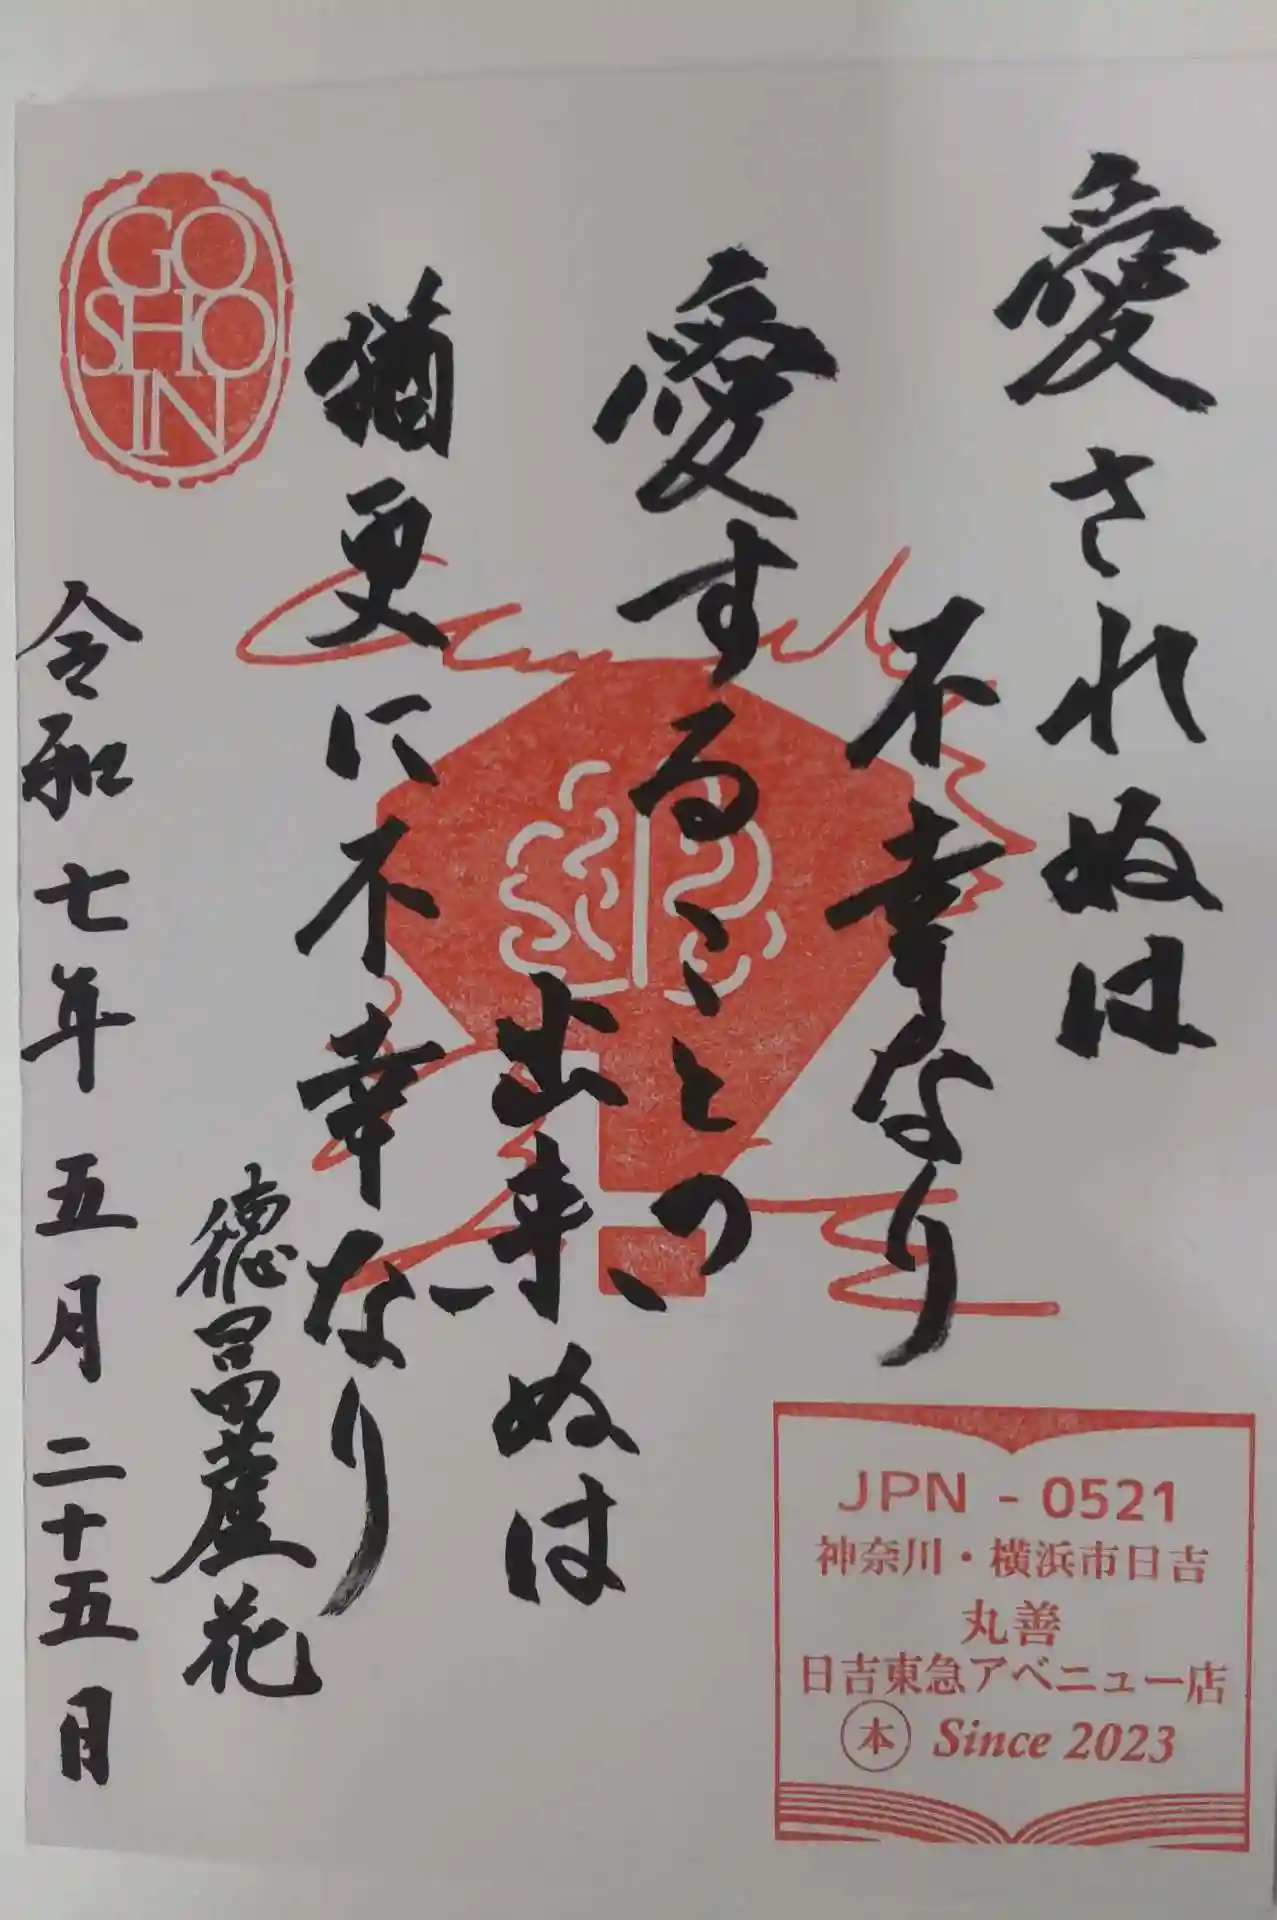 愛されぬは
不幸なり
愛することの
出来ぬは
猶更に不幸なり
徳冨蘆花
令和七年五月二十五日
GO
SHO
IN
JPN - 0521
神奈川・横浜市日吉
丸善
日吉東急アベニュー店
本 Since 2023